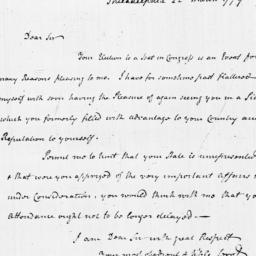 Philadelphia 22 March 1779
Dear Sir
Your Election to a Seat in Congress is an Event for
many Reasons pleasing to me. I have for sometime past flattered
myself with soon having the Pleasure of again seeing you in a
which you formerly filled with advantage to your Country and
Reputation to yourself.
Permit me to hint that your State is unrepresented
& that were you apprized of the very important Affairs
under Consideration, you would think with me that your
Attendance ought not to be longer delayed —
I am Dear Sir with great Respect
Your most obedient & h'ble Servt